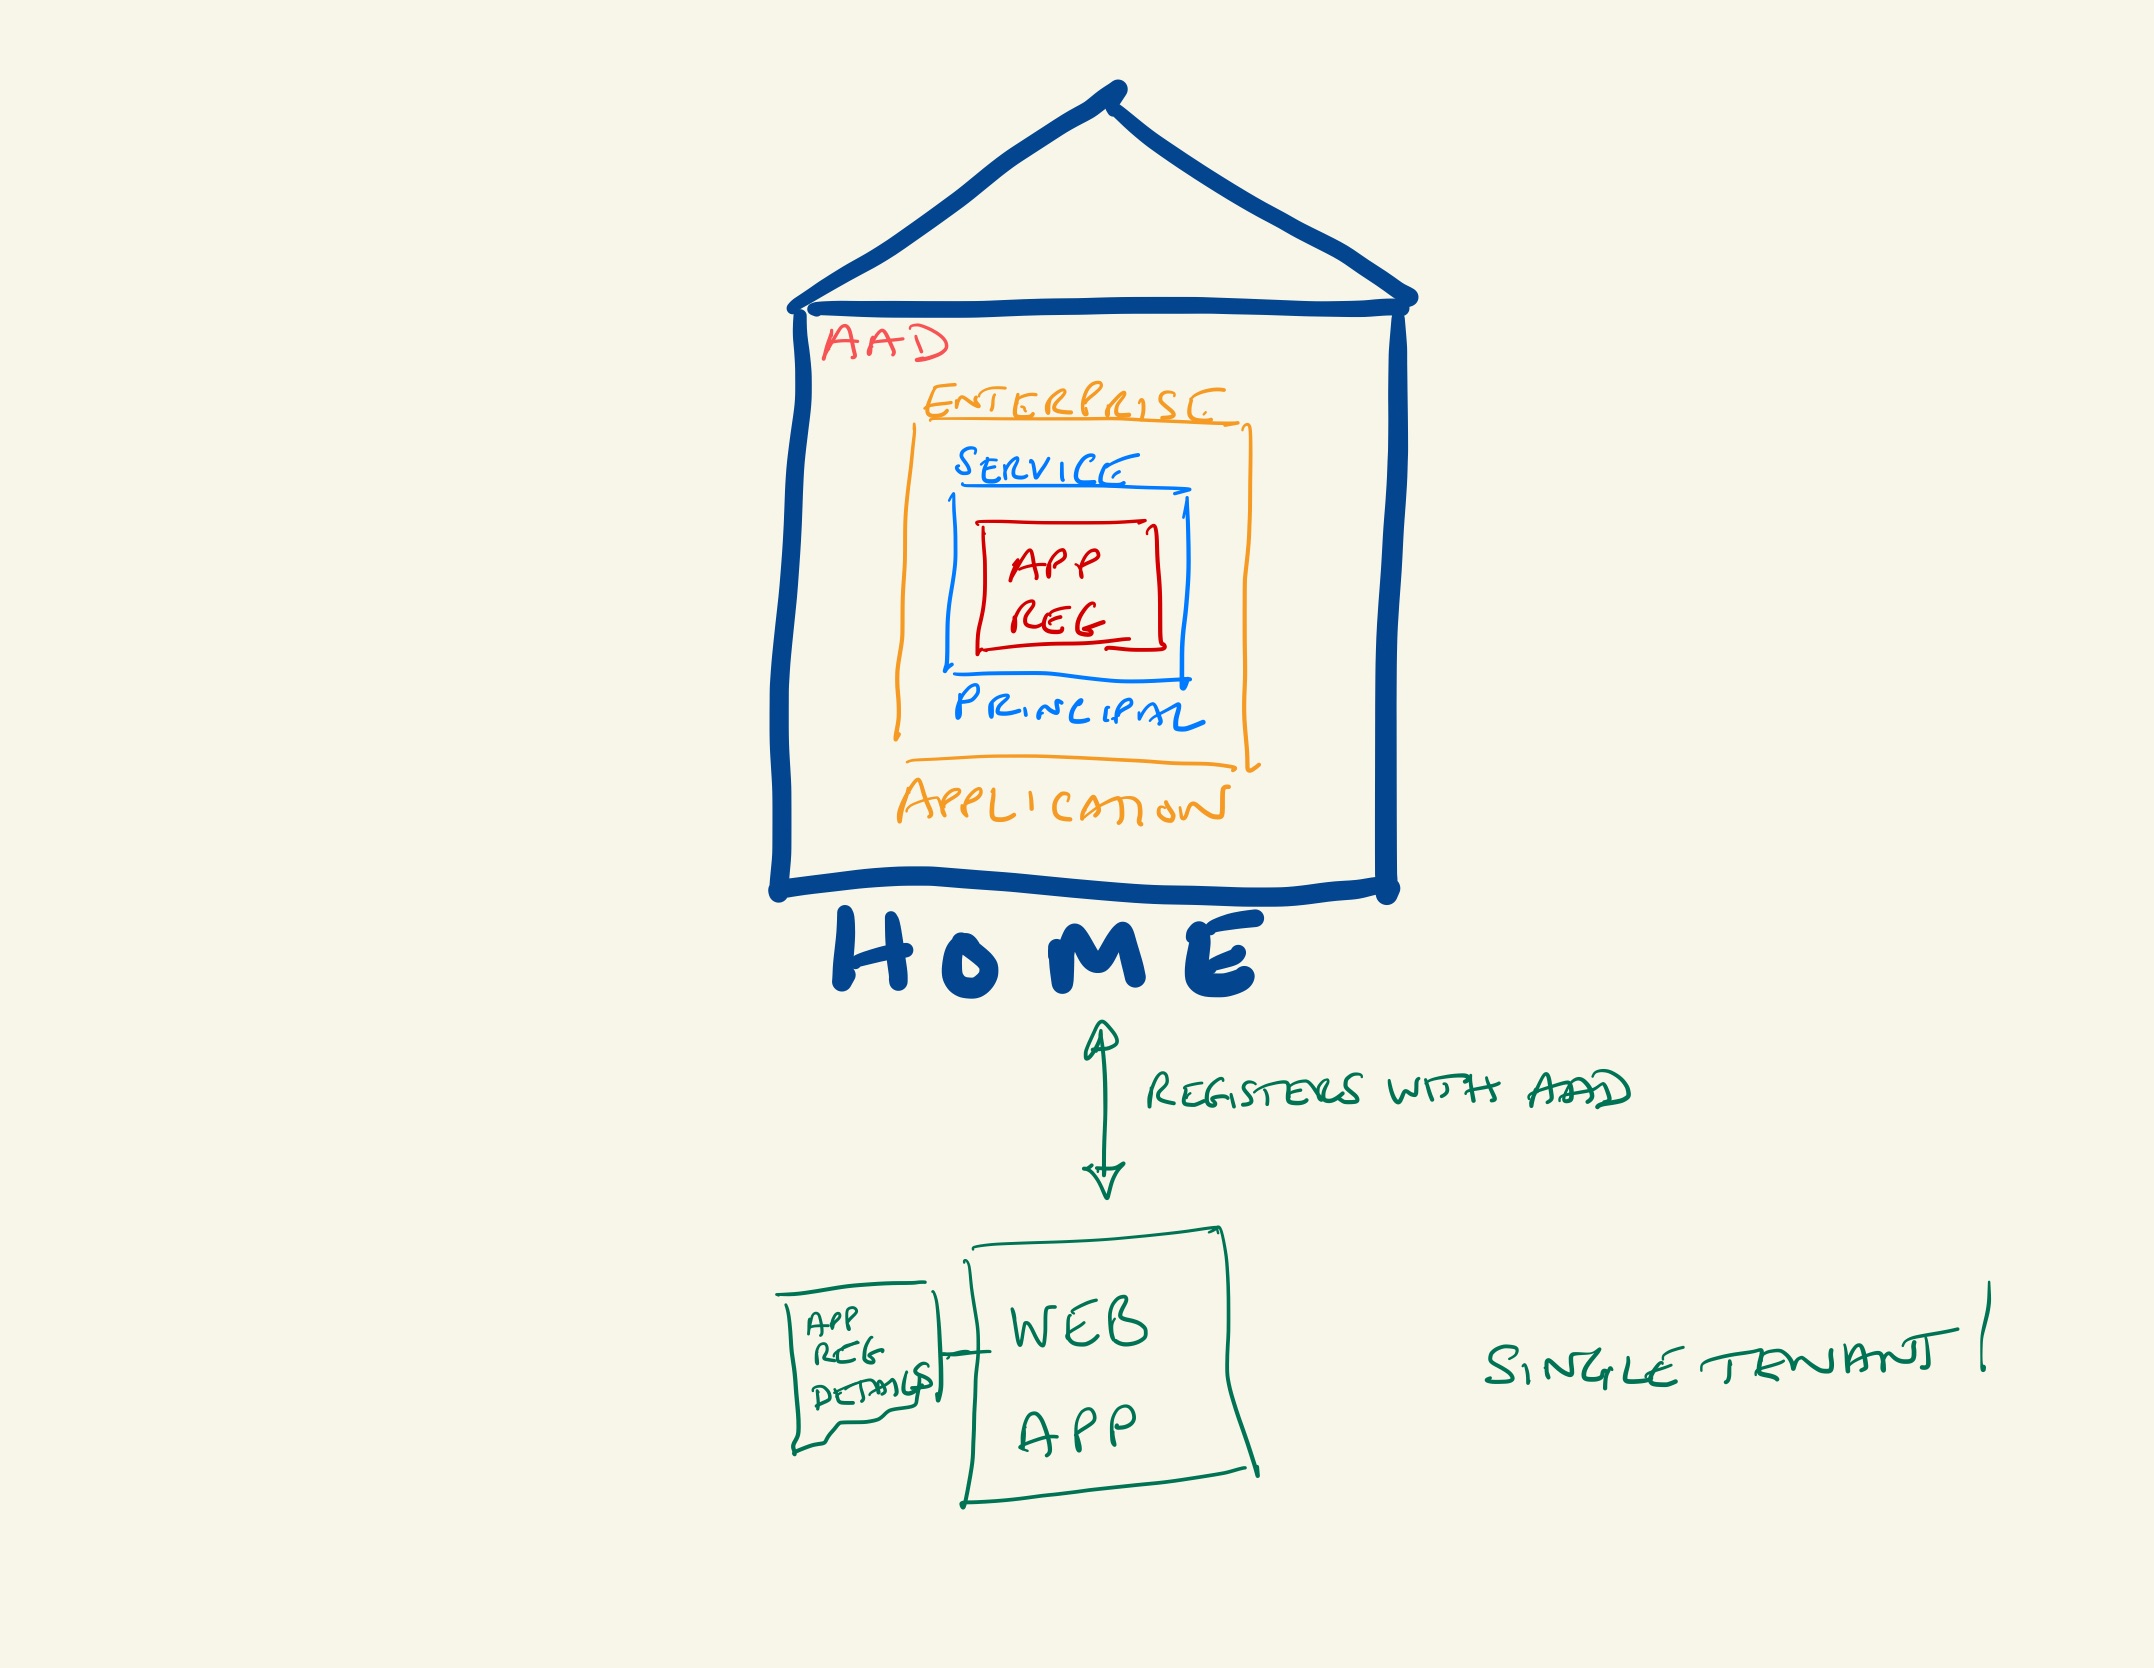 AAD
ENTERPRISE
SERVICE
APP
REG
PRINCIPAL
APPLICATION
HOME
REGISTERS WITH AAD
APP
REG
DETAILS
WEB
APP
SINGLE TENANT